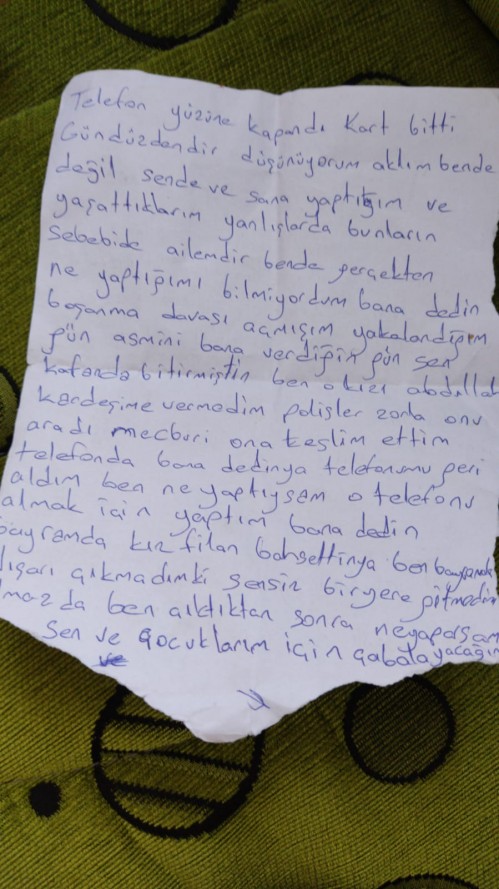 Telefon yüzüne kapandı Kart bitti
Gündüzdendir düşünüyorum aklım bende
değil sende ve sana yaptığım ve
yaşattıklarım yanlışlarda bunların
Sebebide ailemdir bende gerçekten
ne yaptığımı bilmiyordum bana dedin
boşanma davası açmışım yakalandığım
gün asmini bana verdiğin gün sen
kafanda bitirmiştin ben o kızı abdullah
kardeşime vermedim polisler zorla onu
aradı mecburi ona teslim ettim
telefonda bana dedinya telefonumu geri
aldım ben ne yaptıysam o telefonu
almak için yaptım bana dedin
bayramda kız filan bahsettinya ben
dışarı çıkmadımki sensiz biryere gitmedim
da ben çıktıktan sonra neyaparsam
Sen ve çocuklarım için çabalayacağım
ve